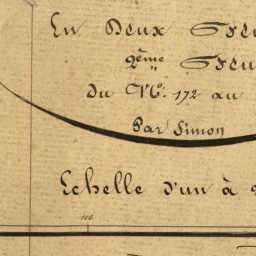 En Deux Feu
2ème Feu
Du N° 172 au
Par Simon
Echelle d'un à
100